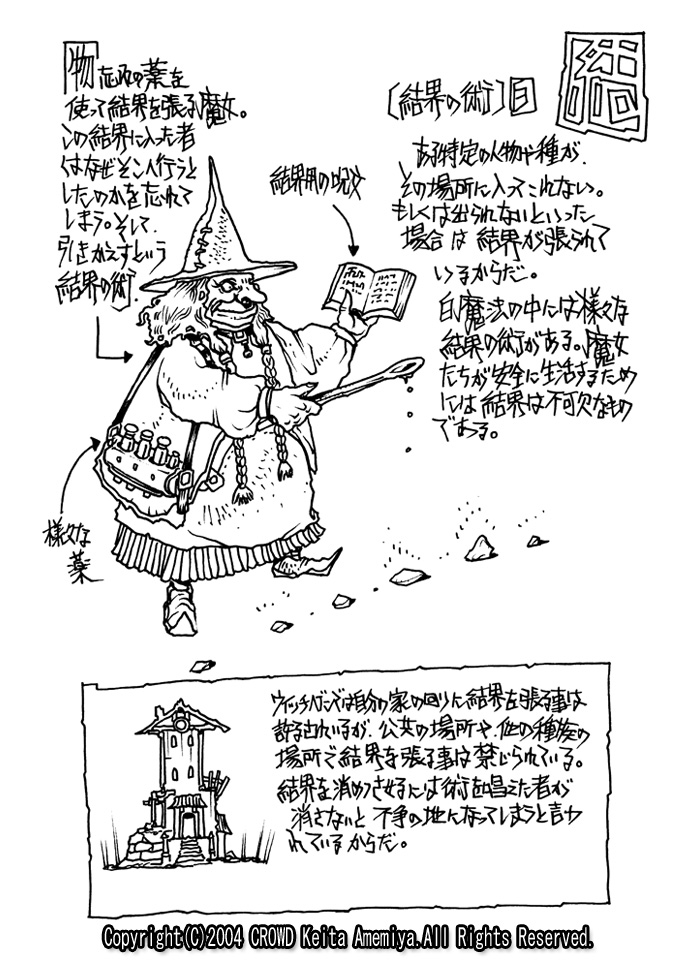 〔結界の術〕白
結
物忘れの薬を
使って結界を張る魔女。
この結界に入った者
はなぜそこへ行こうと
したのかを忘れて
しまう。そして
引きかえすという
結界の術。
結界用の呪文
ある特定の人物や種が、
その場所に入ってこれない。
もしくは出られないといった
場合は結界が張られて
いるからだ。
白魔法の中には様々な
結界の術がある。魔女
たちが安全に生活するため
には結界は不可欠なもの
である。
様々な
薬
では自分の家の回りに結界を張る事は
許されているが、公共の場所や、他の種族の
場所で結界を張る事は禁じられている。
結界を消めつさせるには術を唱えた者が
消さないと不争の地になってしまうと言わ
れているからだ。
Copyright(C)2004 CROWD Keita Amemiya.All Rights Reserved.